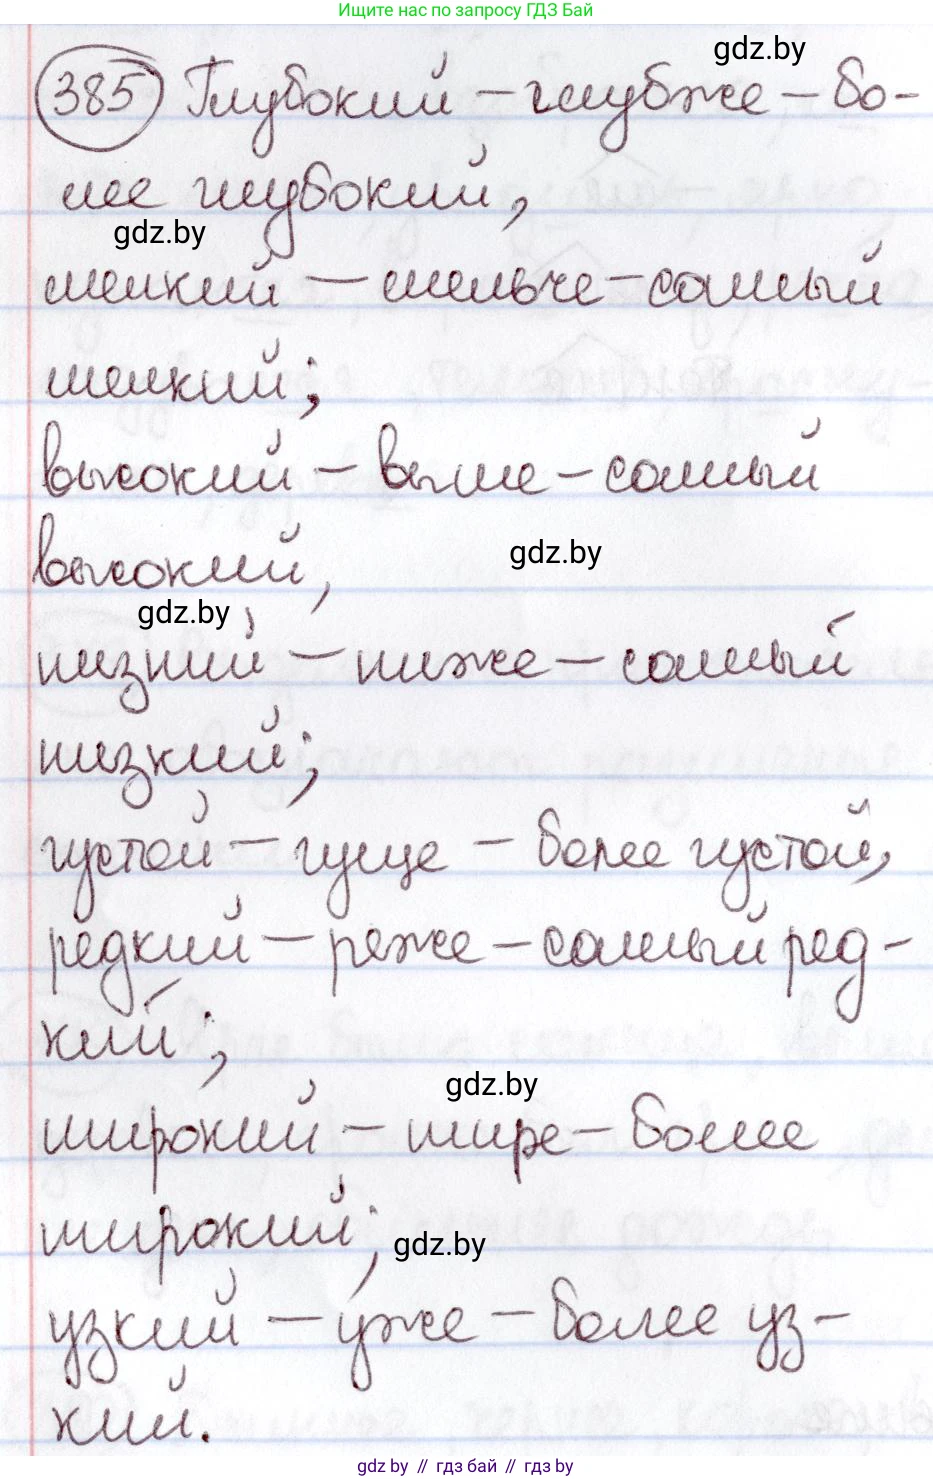 Ищите нас по запросу ГДЗ Бай
gdz.by
385 Глубокий – глубже – бо-
лее глубокий,
gdz.by
мелкий – мельче – самый
мелкий;
высокий – выше – самый
высокий,
gdz.by
gdz.by
низкий – ниже – самый
низкий;
густой – гуще – более густой,
редкий – реже – самый ред-
кий;
gdz.by
широкий – шире – более
широкий;
gdz.by
узкий – у́же – более уз-
кий.
gdz.by // гдз бай // гдз by